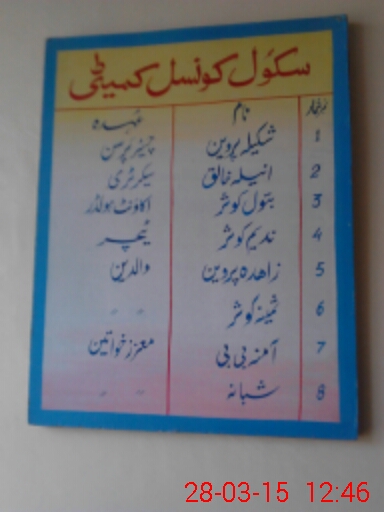 سکول کونسل کمیٹی
نمبر شمار نام عہدہ
1 شکیلہ پروین چیئر پرسن
2 انیلہ خالق سیکرٹری
3 بتول کوثر اکاؤنٹ ہولڈر
4 ندیم کوثر ٹیچر
5 زاھدہ پروین والدین
6 ثمینہ کوثر 〃 〃
7 آمنہ بی بی معزز خواتین
8 شبانہ 〃 〃
28-03-15 12:46